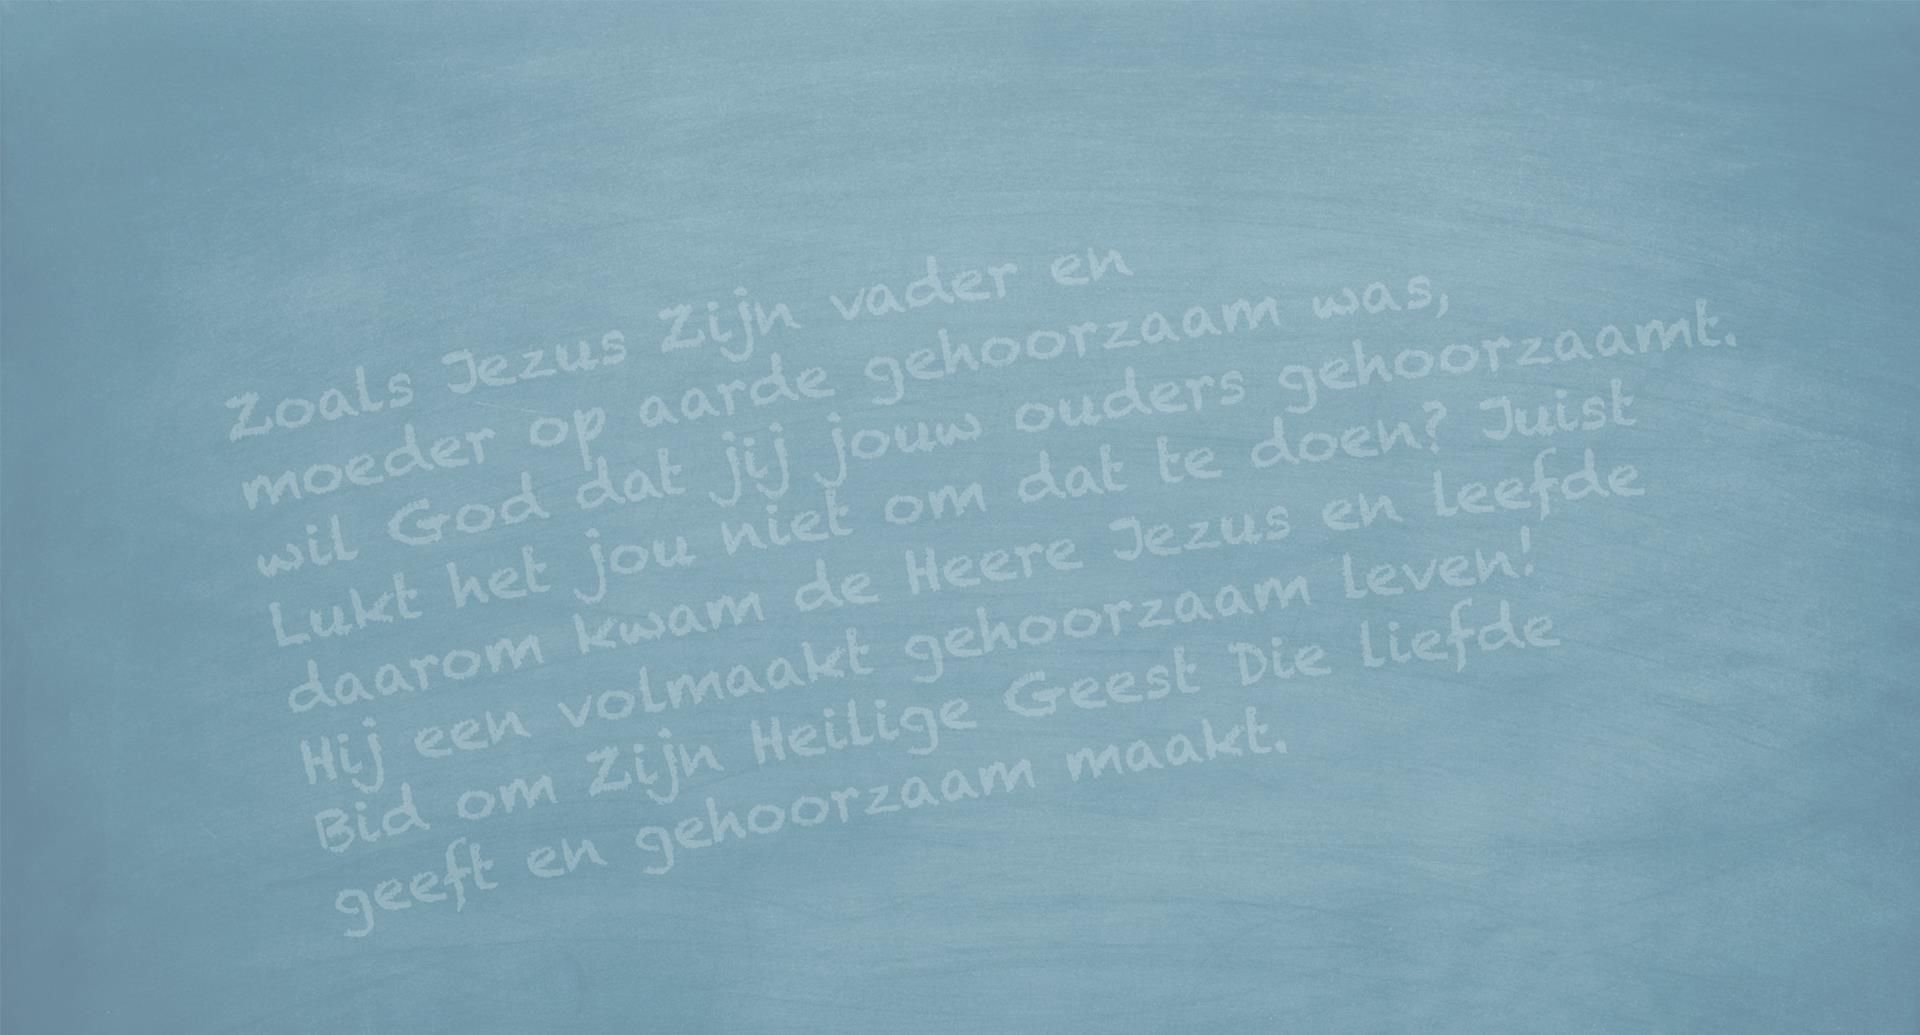 Zoals Jezus Zijn vader en
moeder op aarde gehoorzaam was,
wil God dat jij jouw ouders gehoorzaamt.
Lukt het jou niet om dat te doen? Juist
daarom kwam de Heere Jezus en leefde
Hij een volmaakt gehoorzaam leven!
Bid om Zijn Heilige Geest Die liefde
geeft en gehoorzaam maakt.